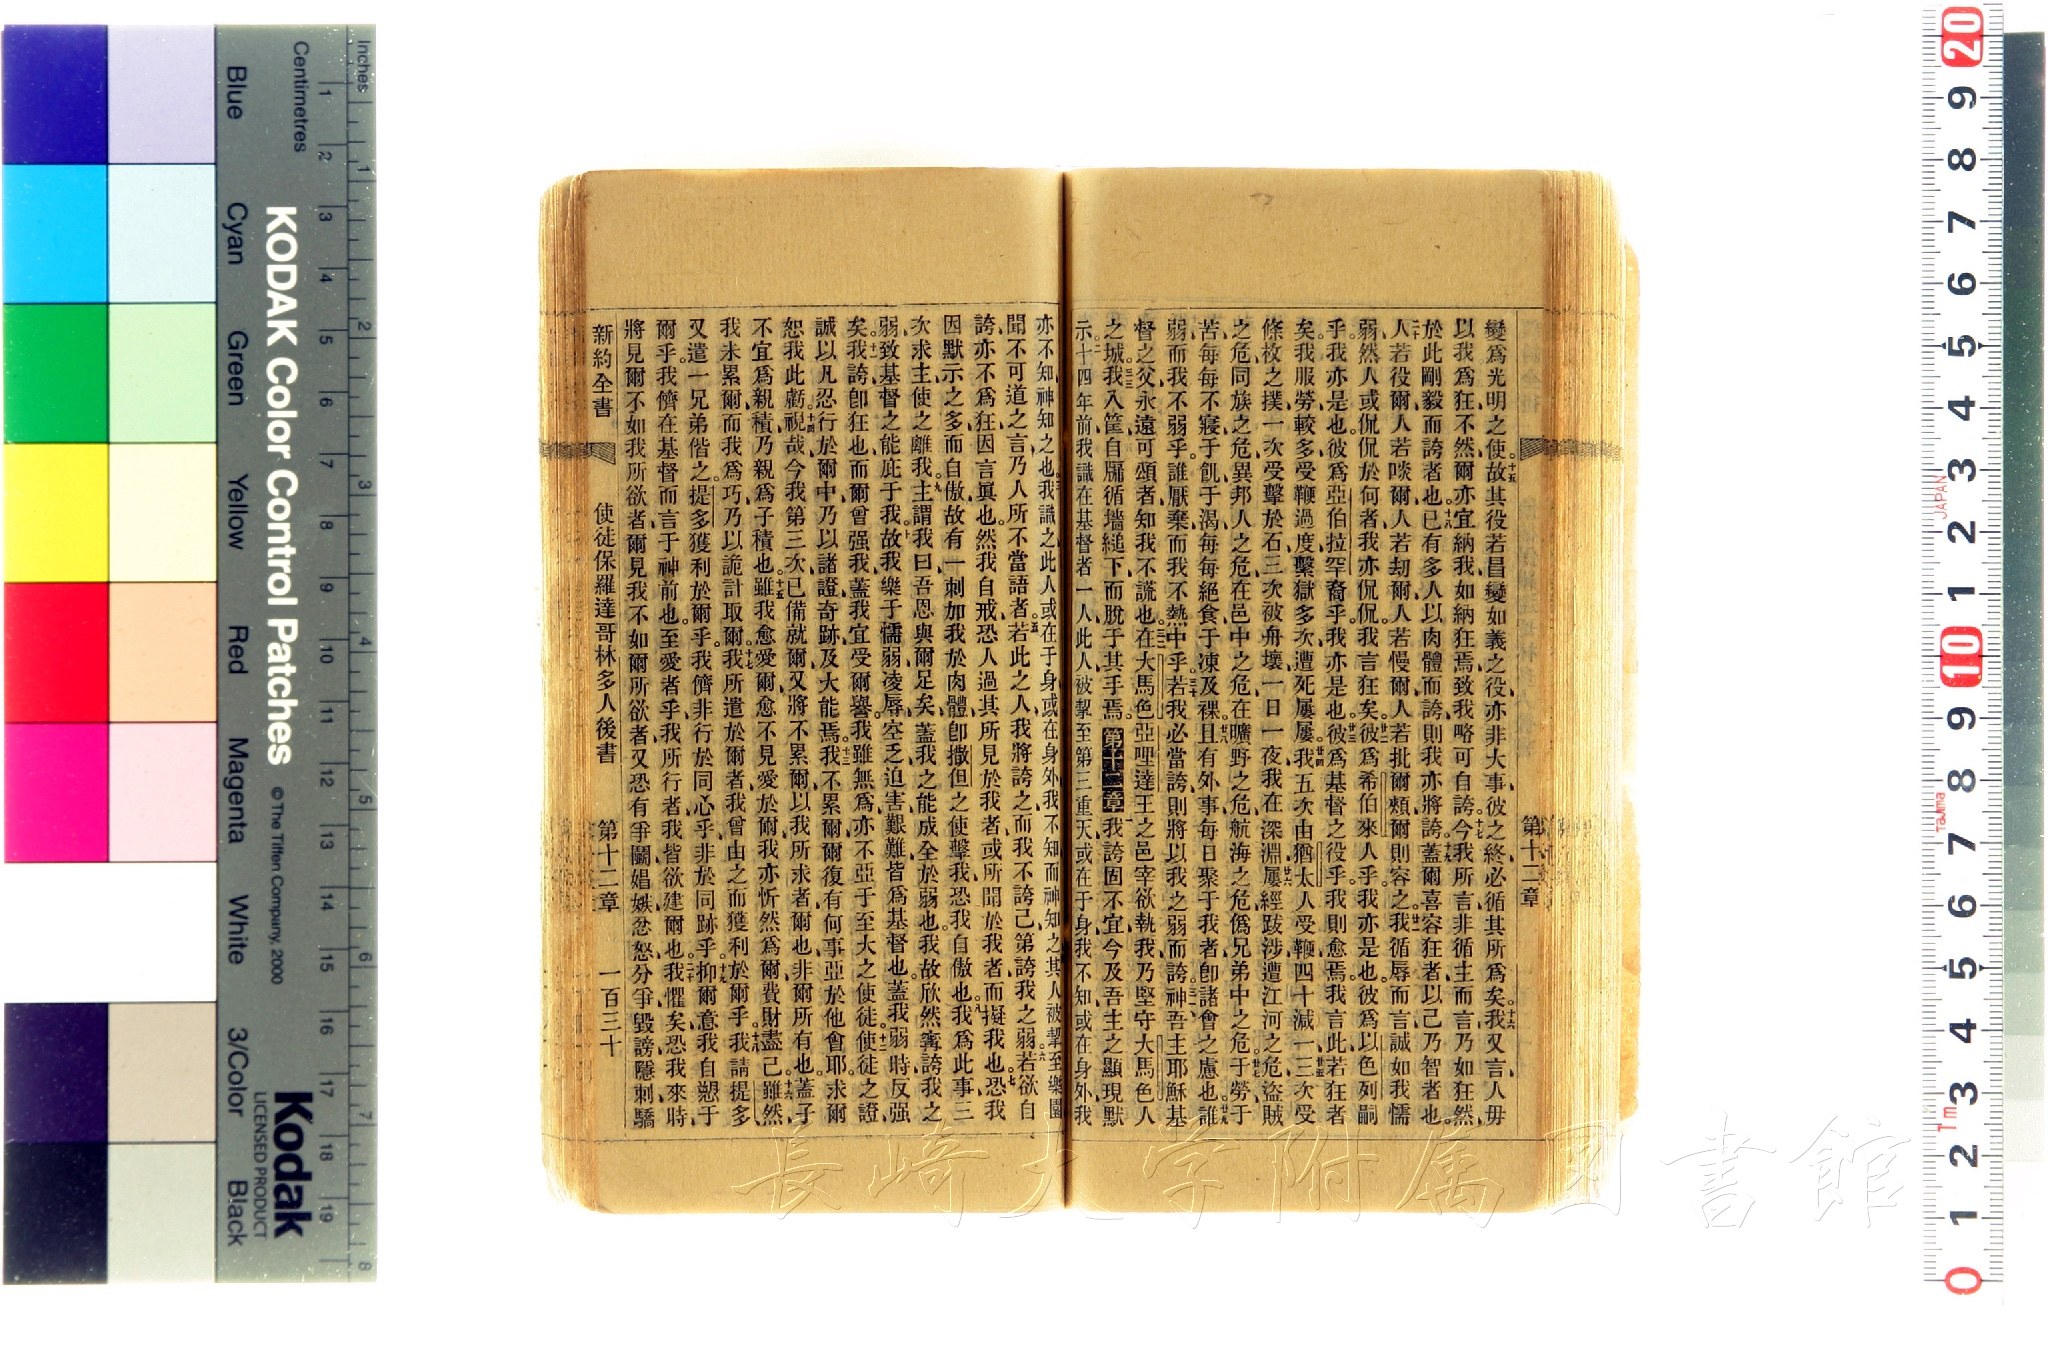 變爲光明之使故其役若昌變如義之役亦非大事彼之終必循其所爲矣我又言人毋
以我爲狂不然爾亦宜納我如納狂焉致我略可自誇今我所言非循主而言乃如狂然
於此剛毅而誇者也已有多人以肉體而誇則我亦將誇蓋爾喜容狂者以己乃智者也
人若役爾人若啖爾人若刧爾人若慢爾人若批爾頰爾則容之我循辱而言誠如我懦
弱然人或侃侃於何者我亦侃侃我言狂矣彼爲希伯來人乎我亦是也彼爲以色列嗣
乎我亦是也彼爲亞伯拉罕裔乎我亦是也彼爲基督之役乎我則愈焉我言此若狂者
矣我服勞較多受鞭過度繫獄多次遭死屢屢我五次由猶太人受鞭四十減一三次受
條杖之撲一次受擊於石三次被舟壞一日一夜我在深淵屢經跋涉遭江河之危盜賊
之危同族之危異邦人之危在邑中之危在曠野之危航海之危僞兄弟中之危于勞于
苦每每不寢于飢于渴每每絕食于凍及裸且有外事每日聚于我者卽諸會之慮也誰
弱而我不弱乎誰厭棄而我不熱中乎若我必當誇則將以我之弱而誇神吾主耶穌基
督之父永遠可頌者知我不謊也在大馬色亞哩達王之邑宰欲執我乃堅守大馬色人
之城我入筐自牖循墻縋下而脫于其手焉第十二章我誇固不宜今及吾主之顯現默
示十四年前我識在基督者一人此人被挈至第三重天或在于身我不知或在身外我
第十二章
亦不知神知之也我識之此人或在于身或在身外我不知而神知之其人被挈至樂園
聞不可道之言乃人所不當語者若此之人我將誇之而我不誇己第誇我之弱若欲自
誇亦不爲狂因言眞也然我自戒恐人過其所見於我者或所聞於我者而擬我也恐我
因默示之多而自傲故有一刺加我於肉體卽撒但之使擊我恐我自傲也我爲此事三
次求主使之離我主謂我曰吾恩與爾足矣蓋我之能成全於弱也我故欣然寗誇我之
弱致基督之能庇于我故我樂于懦弱凌辱空乏迫害艱難皆爲基督也蓋我弱時反强
矣我誇卽狂也而爾曾强我蓋我宜受爾譽我雖無爲亦不亞于至大之使徒使徒之證
誠以凡忍行於爾中乃以諸證奇跡及大能焉我不累爾爾復有何事亞於他會耶求爾
恕我此虧視哉今我第三次已備就爾又將不累爾以我所求者爾也非爾所有也蓋子
不宜爲親積乃親爲子積也雖我愈愛爾愈不見愛於爾我亦忻然爲爾費財盡己雖然
我未累爾而我爲巧乃以詭計取爾我所遣於爾者我曾由之而獲利於爾乎我請提多
又遣一兄弟偕之提多獲利於爾乎我儕非行於同心乎非於同跡乎抑爾意我自愬于
爾乎我儕在基督而言于神前也至愛者乎我所行者我皆欲建爾也我懼矣恐我來時
將見爾不如我所欲者爾見我不如爾所欲者又恐有爭鬭娼嫉忿怒分爭毀謗隱刺驕
新約全書 使徒保羅達哥林多人後書 第十二章 一百三十
KODAK Color Control Patches © The Tiffen Company, 2000
Kodak
LICENSED PRODUCT
Inches
Centimetres
Blue Cyan Green Yellow Red Magenta White 3/Color Black
長崎大学附属図書館
JAPAN
Tajima
Tm